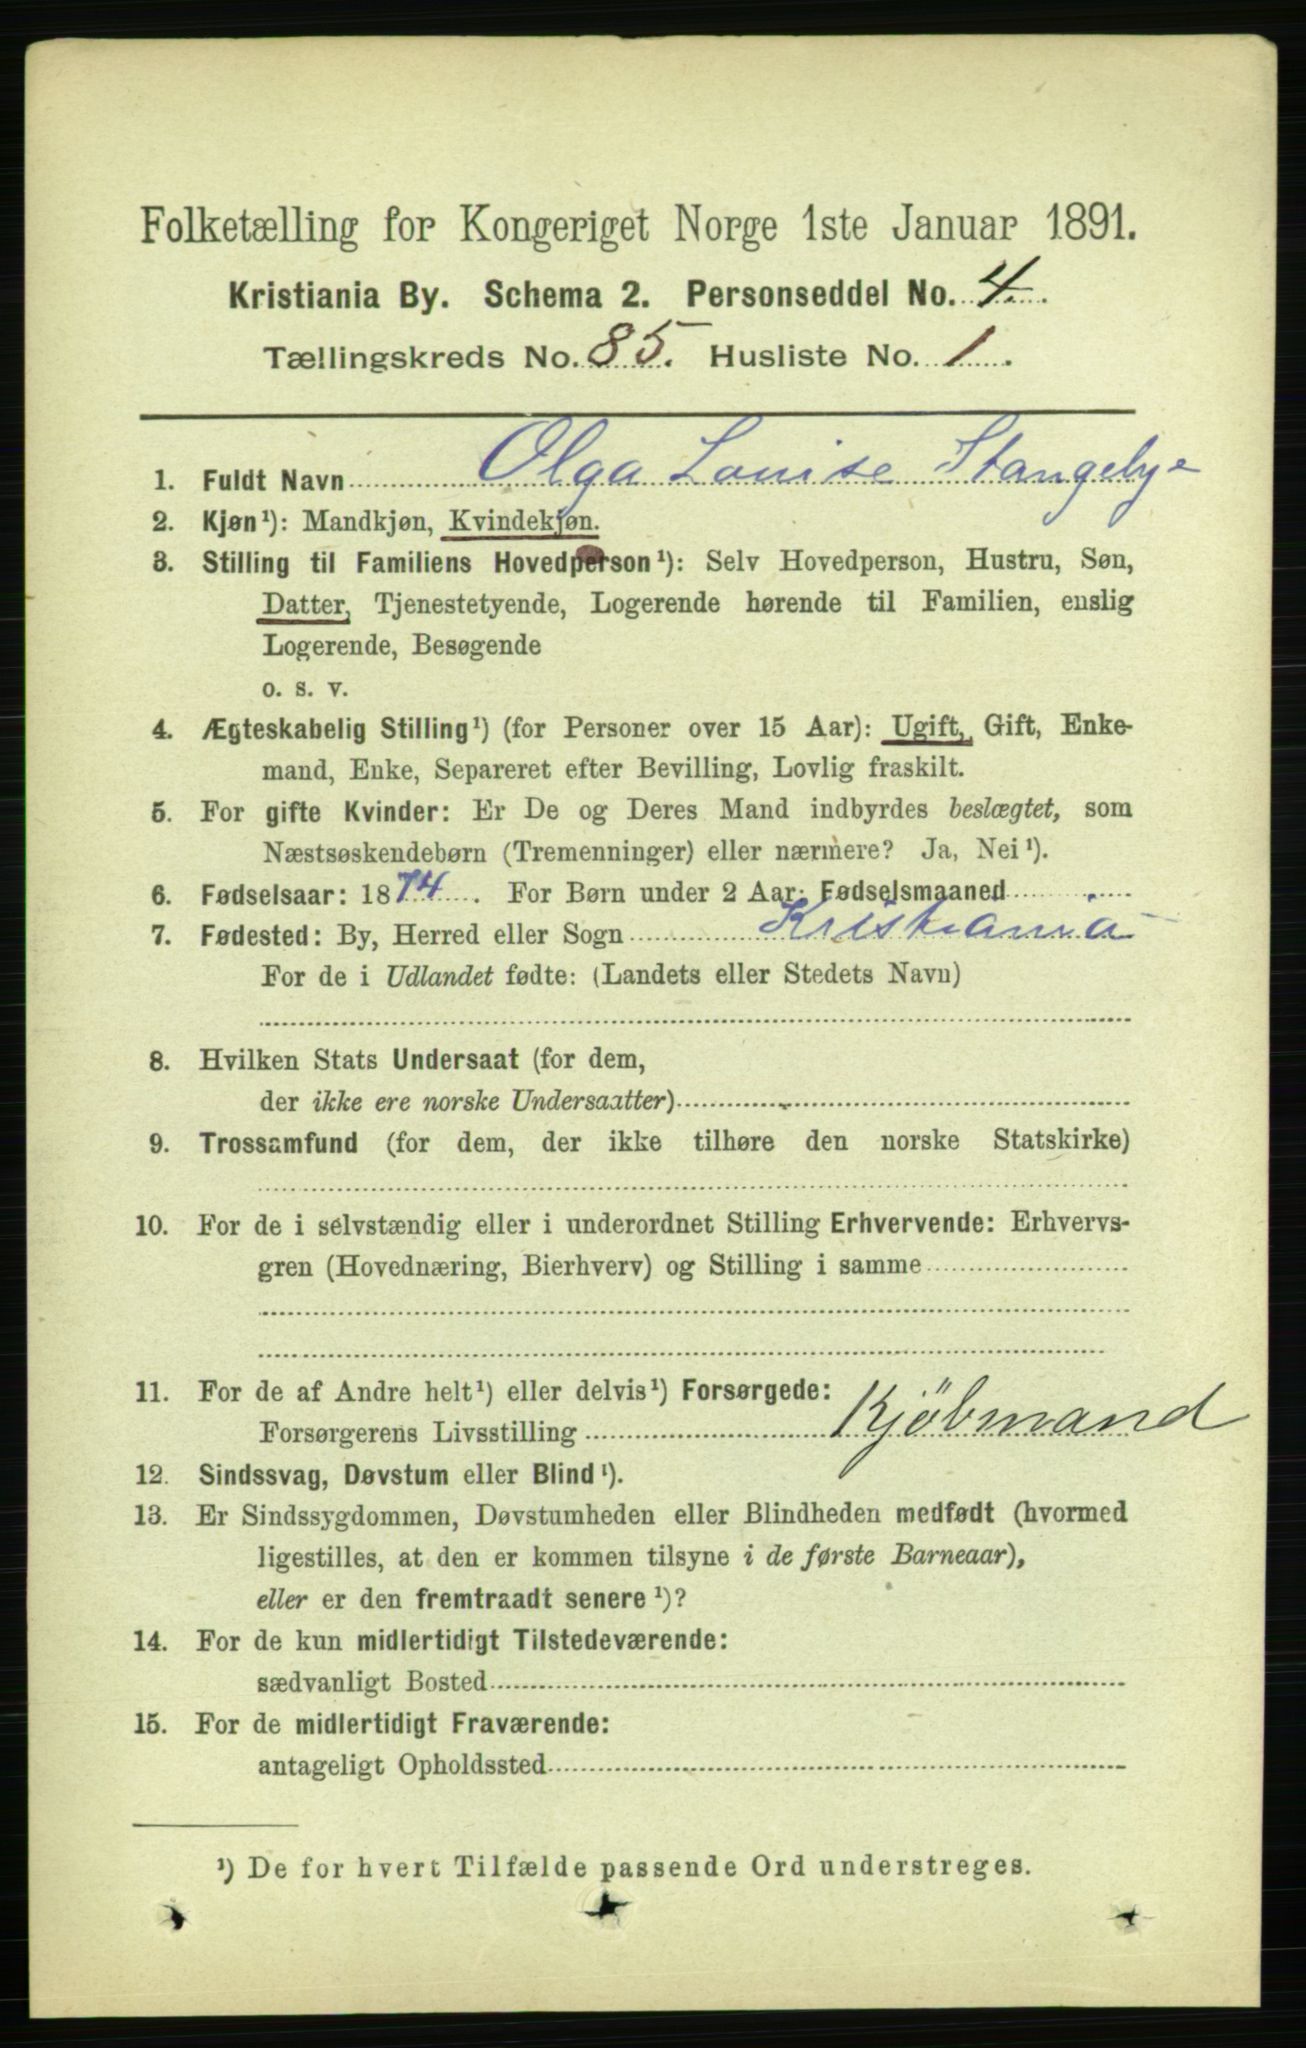 Folketælling for Kongeriget Norge 1ste Januar 1891.
Kristiania By. Schema 2. Personseddel No. 4.
Tællingskreds No. 85. Husliste No. 1.
1. Fuldt Navn Olga Louise Stangebye
2. Kjøn¹): Mandkjøn, Kvindekjøn.
3. Stilling til Familiens Hovedperson¹): Selv Hovedperson, Hustru, Søn,
Datter, Tjenestetyende, Logerende hørende til Familien, enslig
Logerende, Besøgende
o. s. v.
4. Ægteskabelig Stilling¹) (for Personer over 15 Aar): Ugift, Gift, Enke-
mand, Enke, Separeret efter Bevilling, Lovlig fraskilt.
5. For gifte Kvinder: Er De og Deres Mand indbyrdes beslægtet, som
Næstsøskendebørn (Tremenninger) eller nærmere? Ja, Nei¹).
6. Fødselsaar: 1874. For Børn under 2 Aar: Fødselsmaaned
7. Fødested: By, Herred eller Sogn Kristiania
For de i Udlandet fødte: (Landets eller Stedets Navn)
8. Hvilken Stats Undersaat (for dem,
der ikke ere norske Undersaatter)
9. Trossamfund (for dem, der ikke tilhøre den norske Statskirke)
10. For de i selvstændig eller i underordnet Stilling Erhvervende: Erhvervs-
gren (Hovednæring, Bierhverv) og Stilling i samme
11. For de af Andre helt¹) eller delvis¹) Forsørgede:
Forsørgerens Livsstilling Kjöbmand
12. Sindssvag, Døvstum eller Blind¹).
13. Er Sindssygdommen, Døvstumheden eller Blindheden medfødt (hvormed
ligestilles, at den er kommen tilsyne i de første Barneaar),
eller er den fremtraadt senere¹)?
14. For de kun midlertidigt Tilstedeværende:
sædvanligt Bosted
15. For de midlertidigt Fraværende:
antageligt Opholdssted
¹) De for hvert Tilfælde passende Ord understreges.